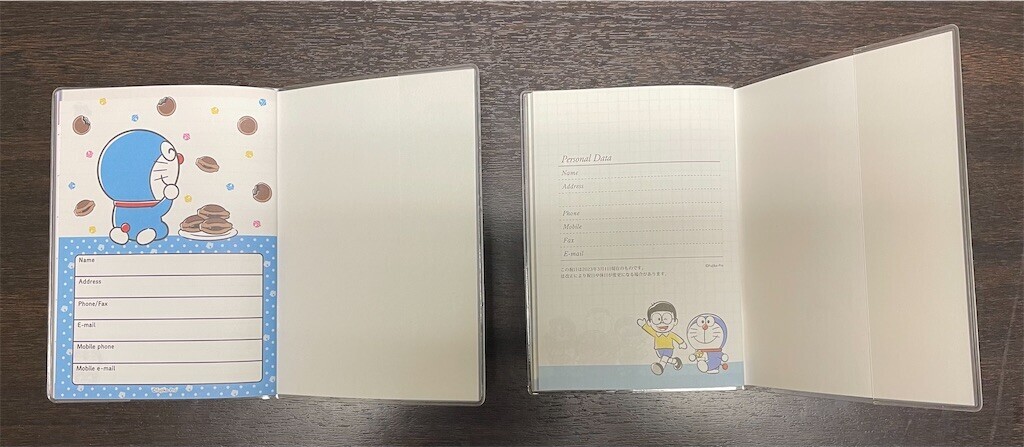 Name
Address
Phone/Fax
E-mail
Mobile phone
Mobile e-mail
Personal Data
Name
Address
Phone
Mobile
Fax
E-mail